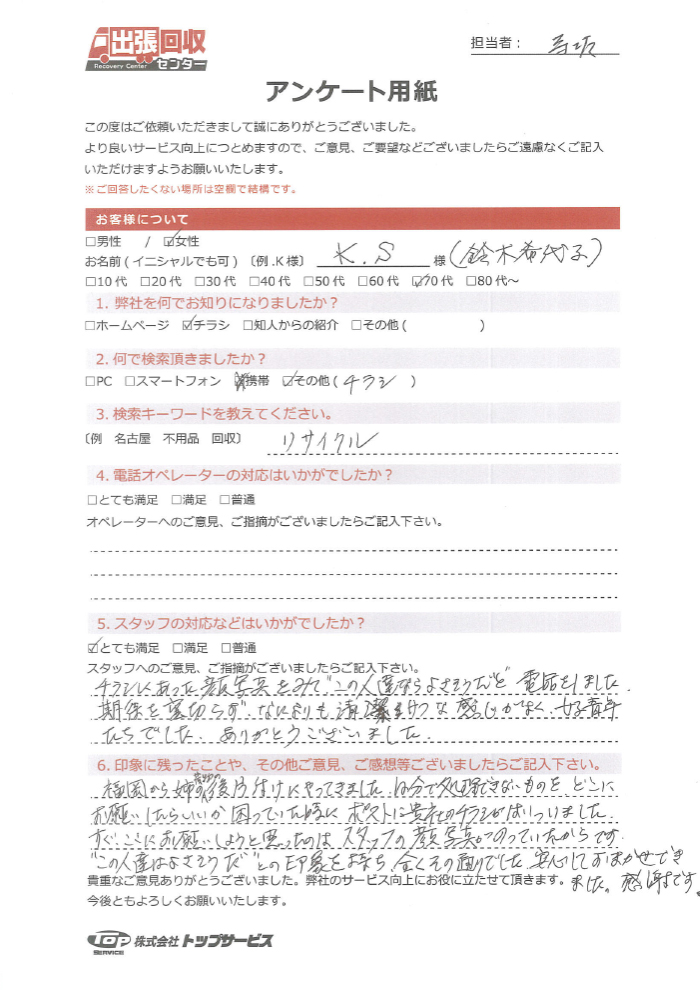 出張回収
Recovery Center センター
担当者：
アンケート用紙
この度はご依頼いただきまして誠にありがとうございました。
より良いサービス向上につとめますので、ご意見、ご要望などございましたらご遠慮なくご記入
いただけますようお願いいたします。
※ご回答したくない場所は空欄で結構です。
お客様について
□男性 / ☑女性
お名前(イニシャルでも可)〔例.K様〕 K.S 様(鈴木希代子)
□10代 □20代 □30代 □40代 □50代 □60代 ☑70代 □80代～
1. 弊社を何でお知りになりましたか？
□ホームページ ☑チラシ □知人からの紹介 □その他( )
2. 何で検索頂きましたか？
□PC □スマートフォン 携帯 ☑その他(チラシ)
3. 検索キーワードを教えてください。
〔例 名古屋 不用品 回収〕 リサイクル
4. 電話オペレーターの対応はいかがでしたか？
□とても満足 □満足 □普通
オペレーターへのご意見、ご指摘がございましたらご記入下さい。
5. スタッフの対応などはいかがでしたか？
☑とても満足 □満足 □普通
スタッフへのご意見、ご指摘がございましたらご記入下さい。
チラシにあった顔写真をみて"この人達ならよさそうだ"と電話をしました。
期待を裏切らず、なによりも清潔 な感じがよく、好青年
たちでした。ありがとうございました。
6. 印象に残ったことや、その他ご意見、ご感想等ございましたらご記入下さい。
福岡から姉の 後片付けにやってきました。自分で処理できないものを、どこに
お願いしたらいいか困っていた時に ポストに貴社のチラシがはいっいました。
すぐここにお願いしようと思ったのは スタッフの顔写真がのっていたからです。
"この人達はよさそうだ"との印象をお持ち、全くその通りでした。安心しておまかせでき
ました。感謝です。
貴重なご意見ありがとうございました。弊社のサービス向上にお役に立たせて頂きます。
今後ともよろしくお願いいたします。
TOP SERVICE 株式会社トップサービス